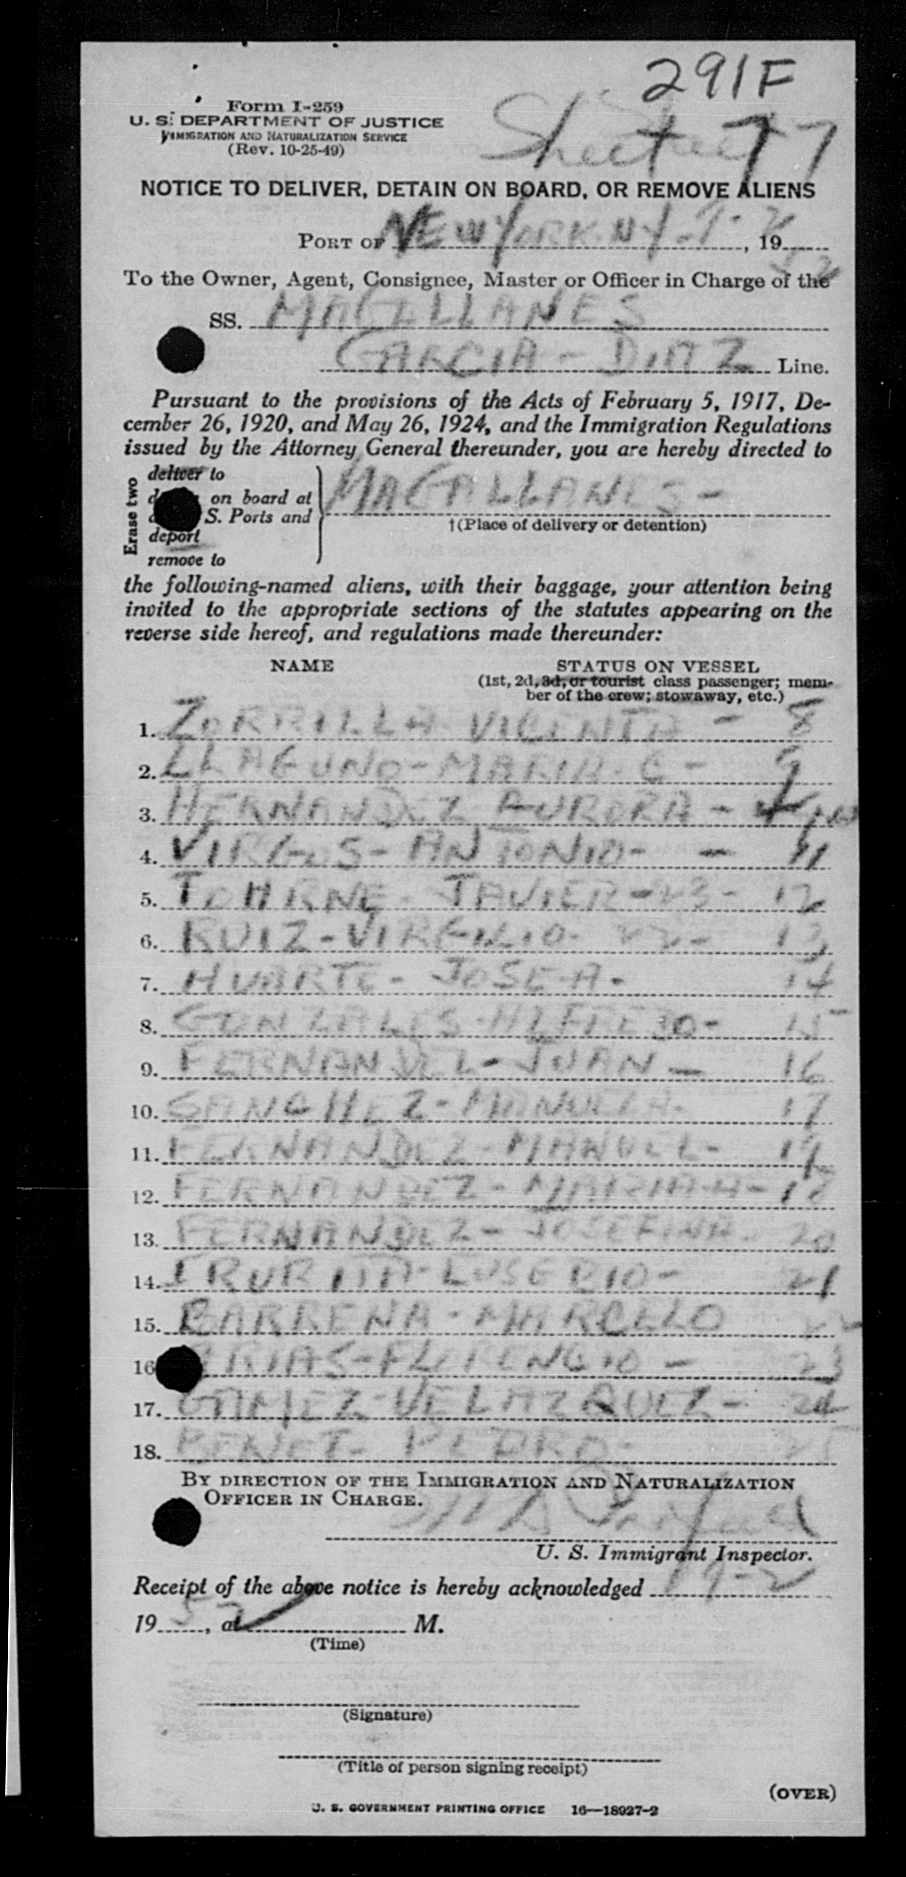 291F
Form I-259
U. S. DEPARTMENT OF JUSTICE
IMMIGRATION AND NATURALIZATION SERVICE
(Rev. 10-25-49)
Sheet 77
NOTICE TO DELIVER, DETAIN ON BOARD, OR REMOVE ALIENS
PORT OF NEW YORK NY 9-2, 1952
To the Owner, Agent, Consignee, Master or Officer in Charge of the
SS. MAGALLANES
GARCIA-DIAZ Line.
Pursuant to the provisions of the Acts of February 5, 1917, De-
cember 26, 1920, and May 26, 1924, and the Immigration Regulations
issued by the Attorney General thereunder, you are hereby directed to
Erase two
deliver to
on board at
S. Ports and
deport
remove to
MAGALLANES-
†(Place of delivery or detention)
the following-named aliens, with their baggage, your attention being
invited to the appropriate sections of the statutes appearing on the
reverse side hereof, and regulations made thereunder:
NAME STATUS ON VESSEL
(1st, 2d, 3d, or tourist class passenger; mem-
ber of the crew; stowaway, etc.)
1. ZORRILLA VICENTA - 8
2. LLAGUNO-MARIA-C- 9
3. HERNANDEZ AURORA - 10
4. ANTONIO- - 11
5. JAVIER-23- 12
6. RUIZ-VIRGILIO- 22- 13
7. HUARTE- JOSE-A- 14
8. GONZALES-ALFREDO- 15
9. FERNANDEZ-JUAN - 16
10. SANCHEZ-MANUELA- 17
11. FERNANDEZ-MANUEL- 19
12. FERNANDEZ-MARIA-A-18
13. FERNANDEZ-JOSEFINA- 20
14. IRURITA-EUSEBIO- 21
15. BARRENA-MARCELO 22
16. ARIAS-FLORENCIO - 23
17. GAMEZ-VELAZQUEZ- 24
18. BENET- PEDRO- 25
BY DIRECTION OF THE IMMIGRATION AND NATURALIZATION
OFFICER IN CHARGE.
U. S. Immigrant Inspector.
Receipt of the above notice is hereby acknowledged 9-2
1952, at M.
(Time)
(Signature)
(Title of person signing receipt)
(OVER)
U. S. GOVERNMENT PRINTING OFFICE 16—18927-2